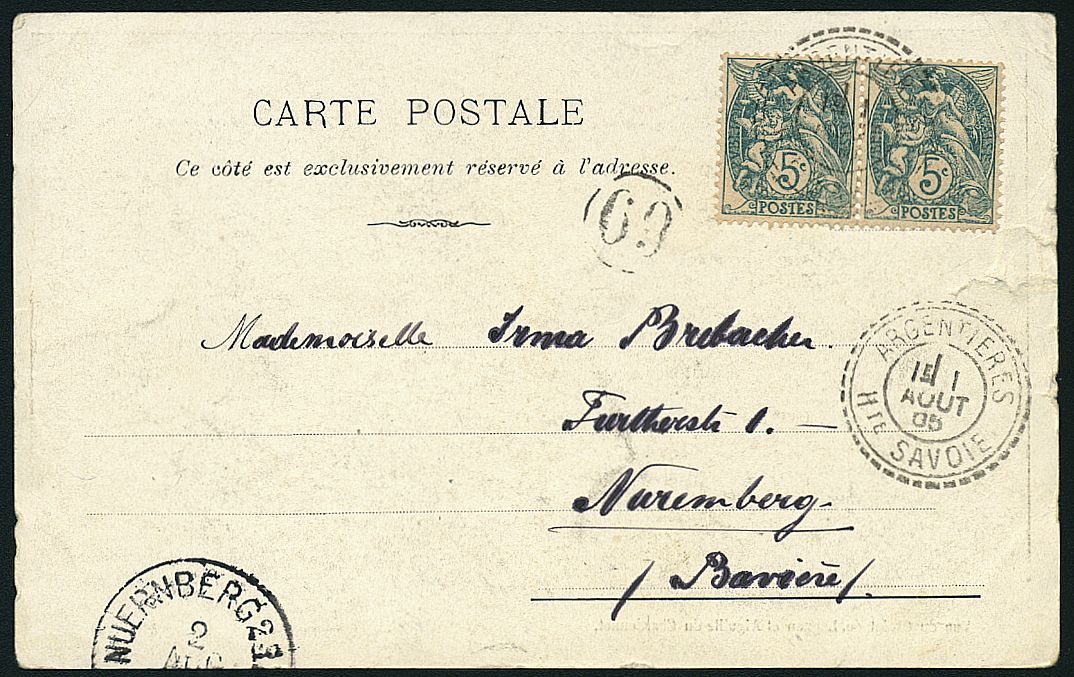 CARTE POSTALE
Ce côté est exclusivement réservé à l'adresse.
5c 5c
POSTES POSTES
69
Mademoiselle Irma Brebacher.
Furtherstr 1. —
Nuremberg
/ Bavière /
ARGENTIERES
1E 1
AOUT
05
HTE SAVOIE
NUERNBERG 2
2
AUG